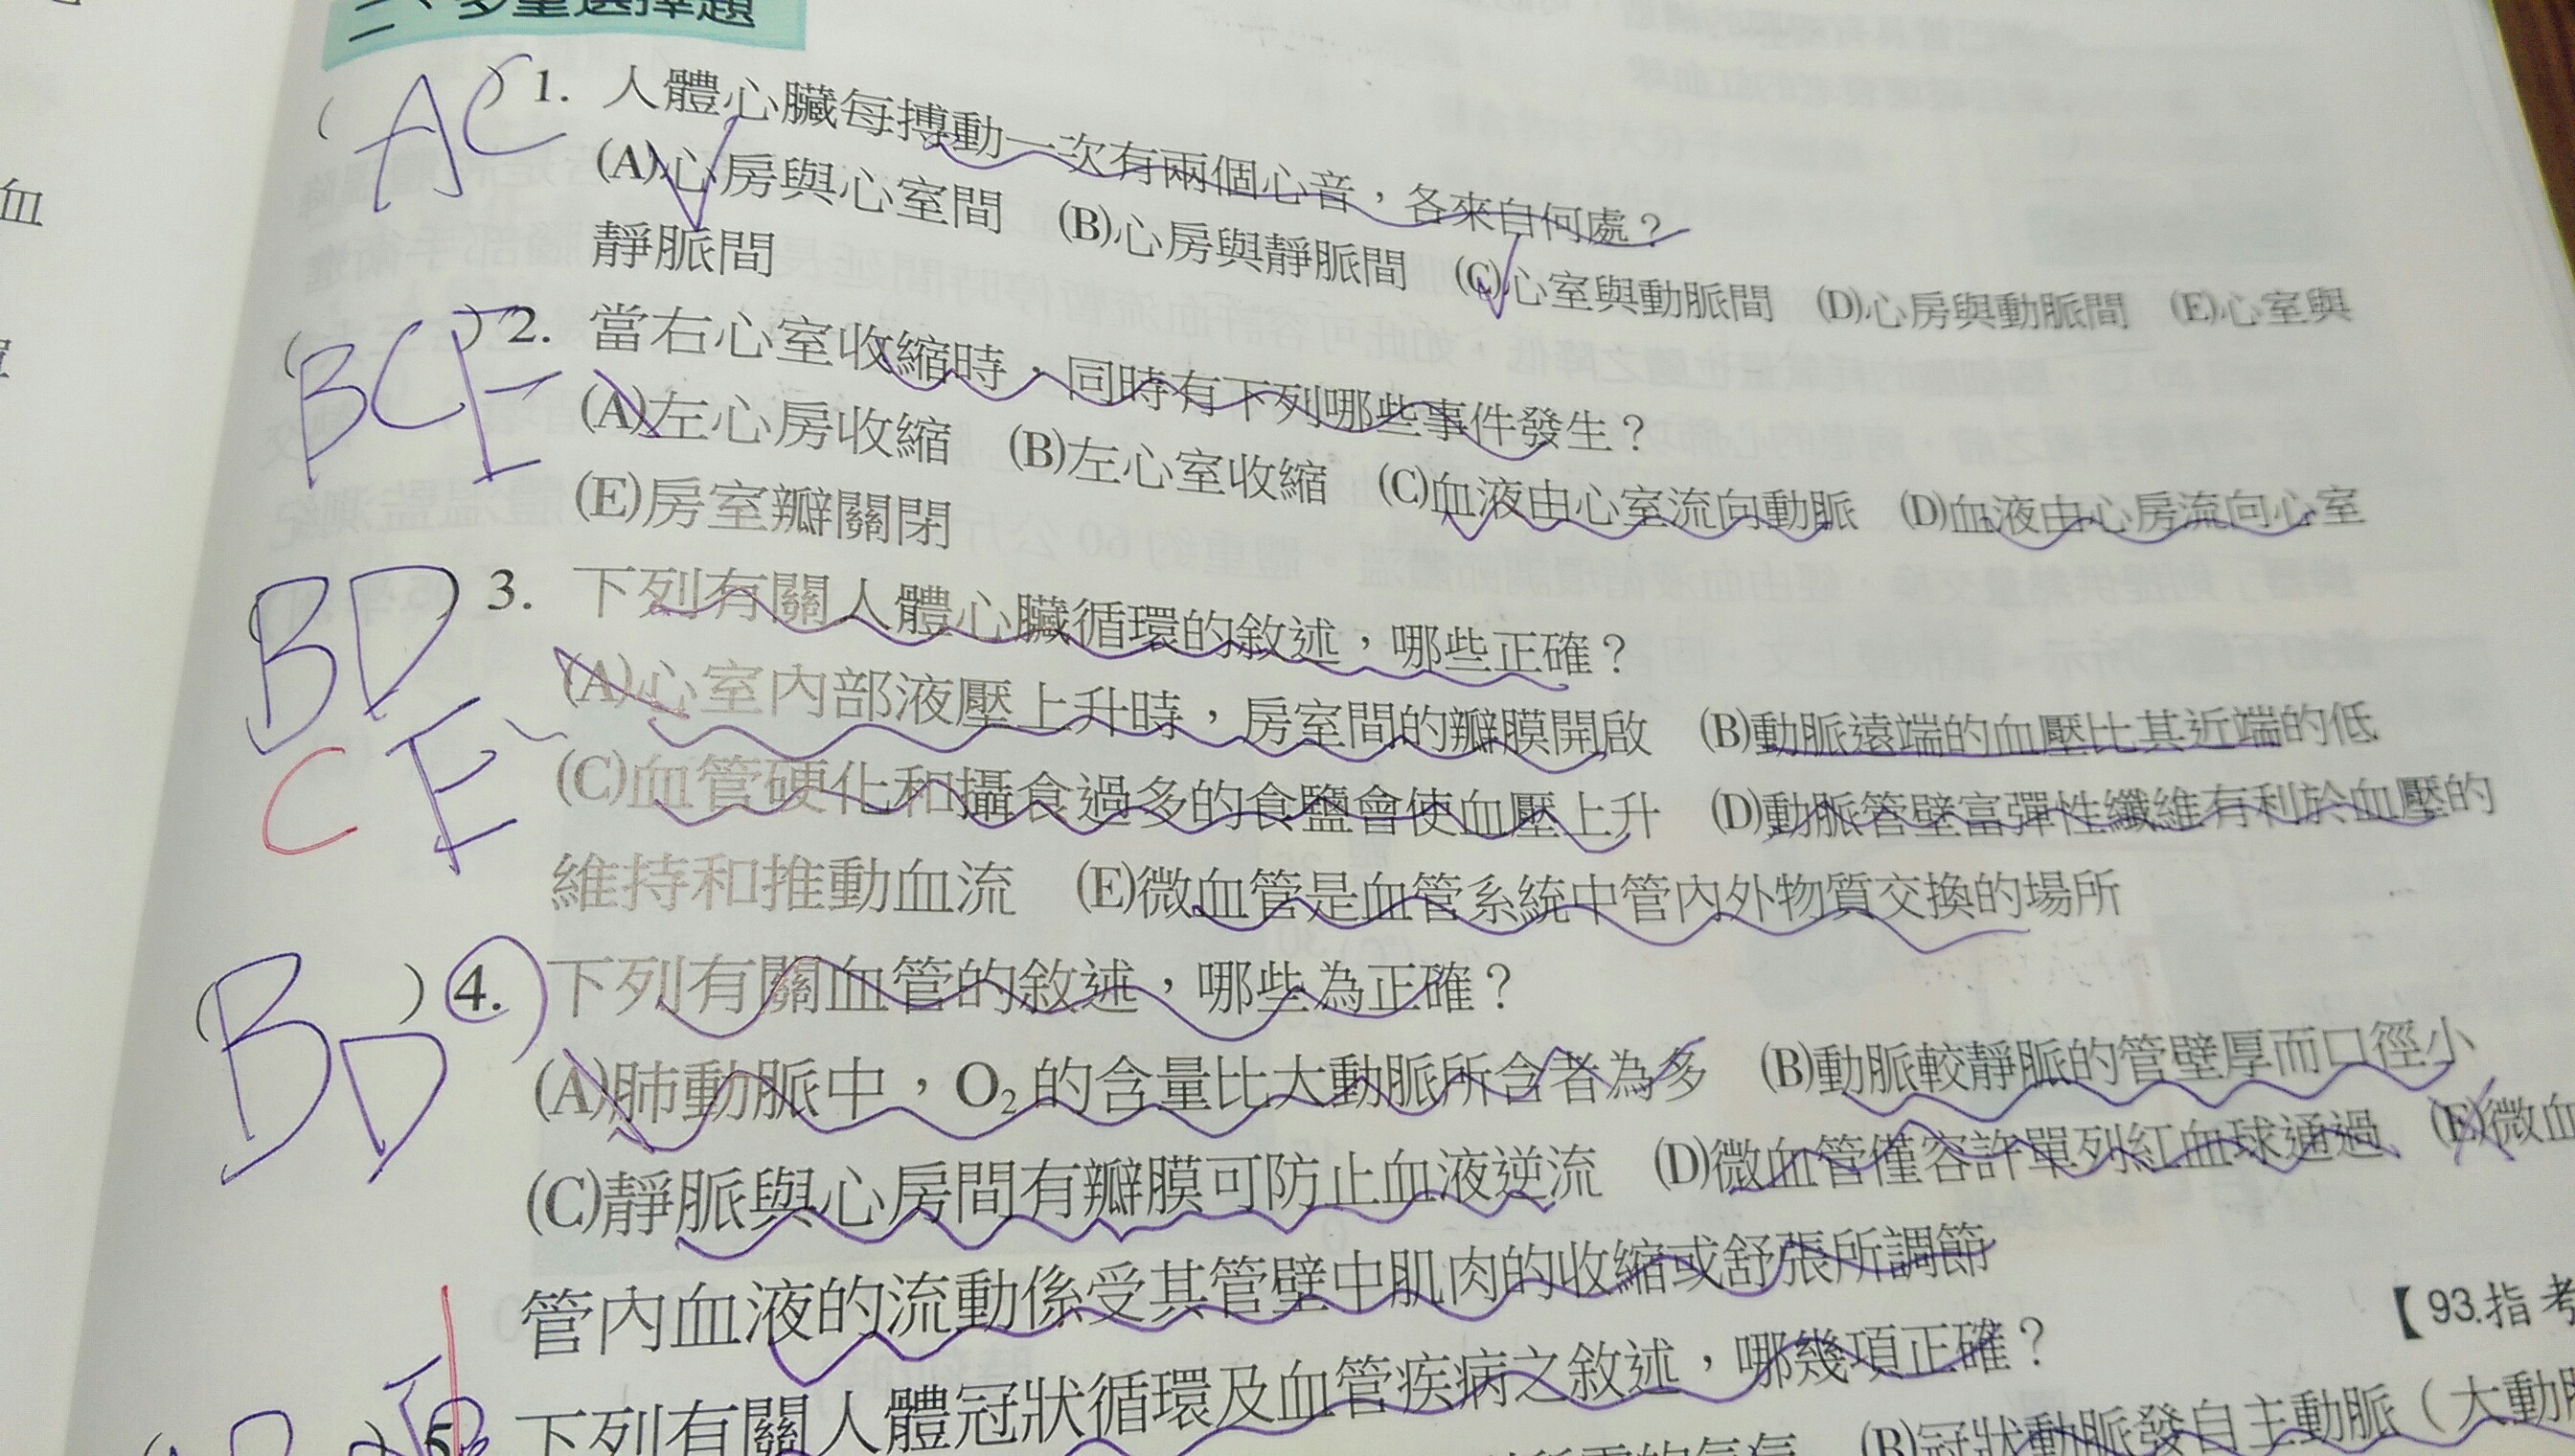 二、多重選擇題
( AC ) 1. 人體心臟每搏動一次有兩個心音，各來自何處？
(A)心房與心室間 (B)心房與靜脈間 (C)心室與動脈間 (D)心房與動脈間 (E)心室與
靜脈間
( BCE ) 2. 當右心室收縮時，同時有下列哪些事件發生？
(A)左心房收縮 (B)左心室收縮 (C)血液由心室流向動脈 (D)血液由心房流向心室
(E)房室瓣關閉
( BD ) 3. 下列有關人體心臟循環的敘述，哪些正確？
C E
(A)心室內部液壓上升時，房室間的瓣膜開啟 (B)動脈遠端的血壓比其近端的低
(C)血管硬化和攝食過多的食鹽會使血壓上升 (D)動脈管壁富彈性纖維有利於血壓的
維持和推動血流 (E)微血管是血管系統中管內外物質交換的場所
( BD ) 4. 下列有關血管的敘述，哪些為正確？
(A)肺動脈中，O₂的含量比大動脈所含者為多 (B)動脈較靜脈的管壁厚而口徑小
(C)靜脈與心房間有瓣膜可防止血液逆流 (D)微血管僅容許單列紅血球通過 (E)微血
管內血液的流動係受其管壁中肌肉的收縮或舒張所調節
【93.指考
) 5. 下列有關人體冠狀循環及血管疾病之敘述，哪幾項正確？
(B)冠狀動脈發自主動脈（大動脈
血